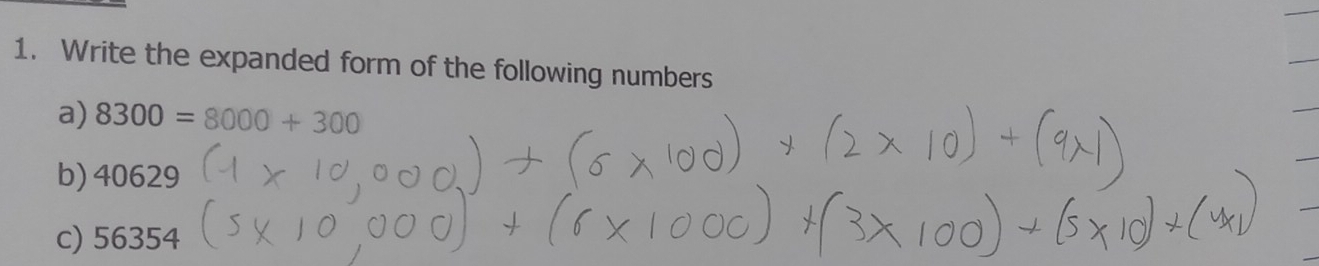 1. Write the expanded form of the following numbers
a) 8300 = 8000 + 300
b) 40629 (4 x 10,000) + (6 x 100) + (2 x 10) + (9x1)
c) 56354 (5x 10,000) + (6 x 1000) + (3x 100) + (5 x 10) + (4x1)